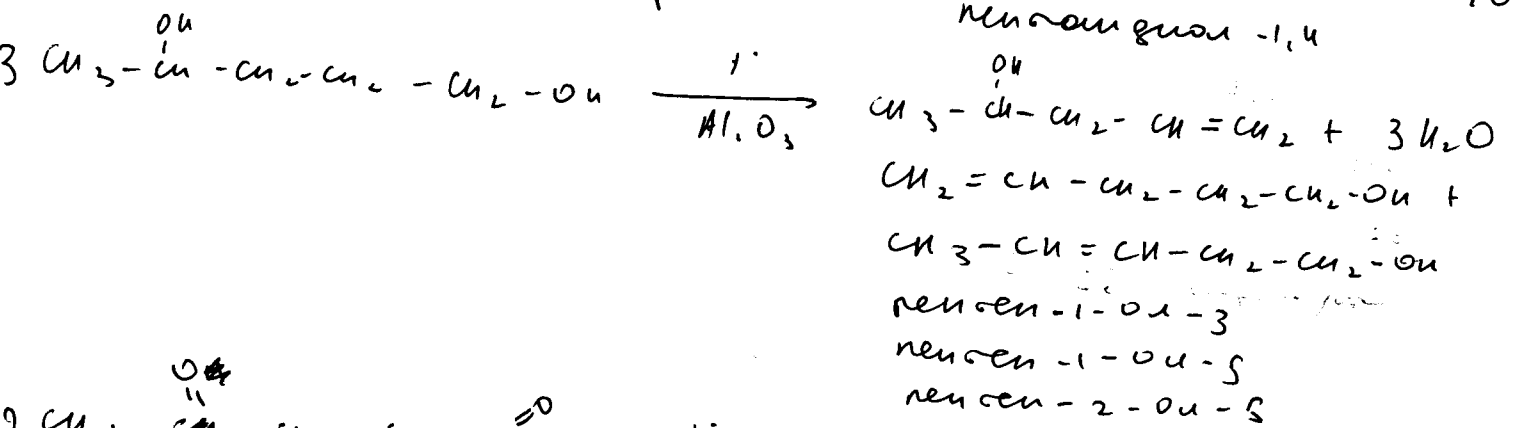 пентандиол -1,4
OH
3 CH3 - CH - CH2 - CH2 - CH2 - OH
t°
Al2O3
OH
CH3 - CH - CH2 - CH = CH2 + 3H2O
CH2 = CH - CH2 - CH2 - CH2 - OH +
CH3 - CH = CH - CH2 - CH2 - OH
пентен -1 - ол - 3
пентен -1 - ол - 5
пентен - 2 - ол - 5
O
=O